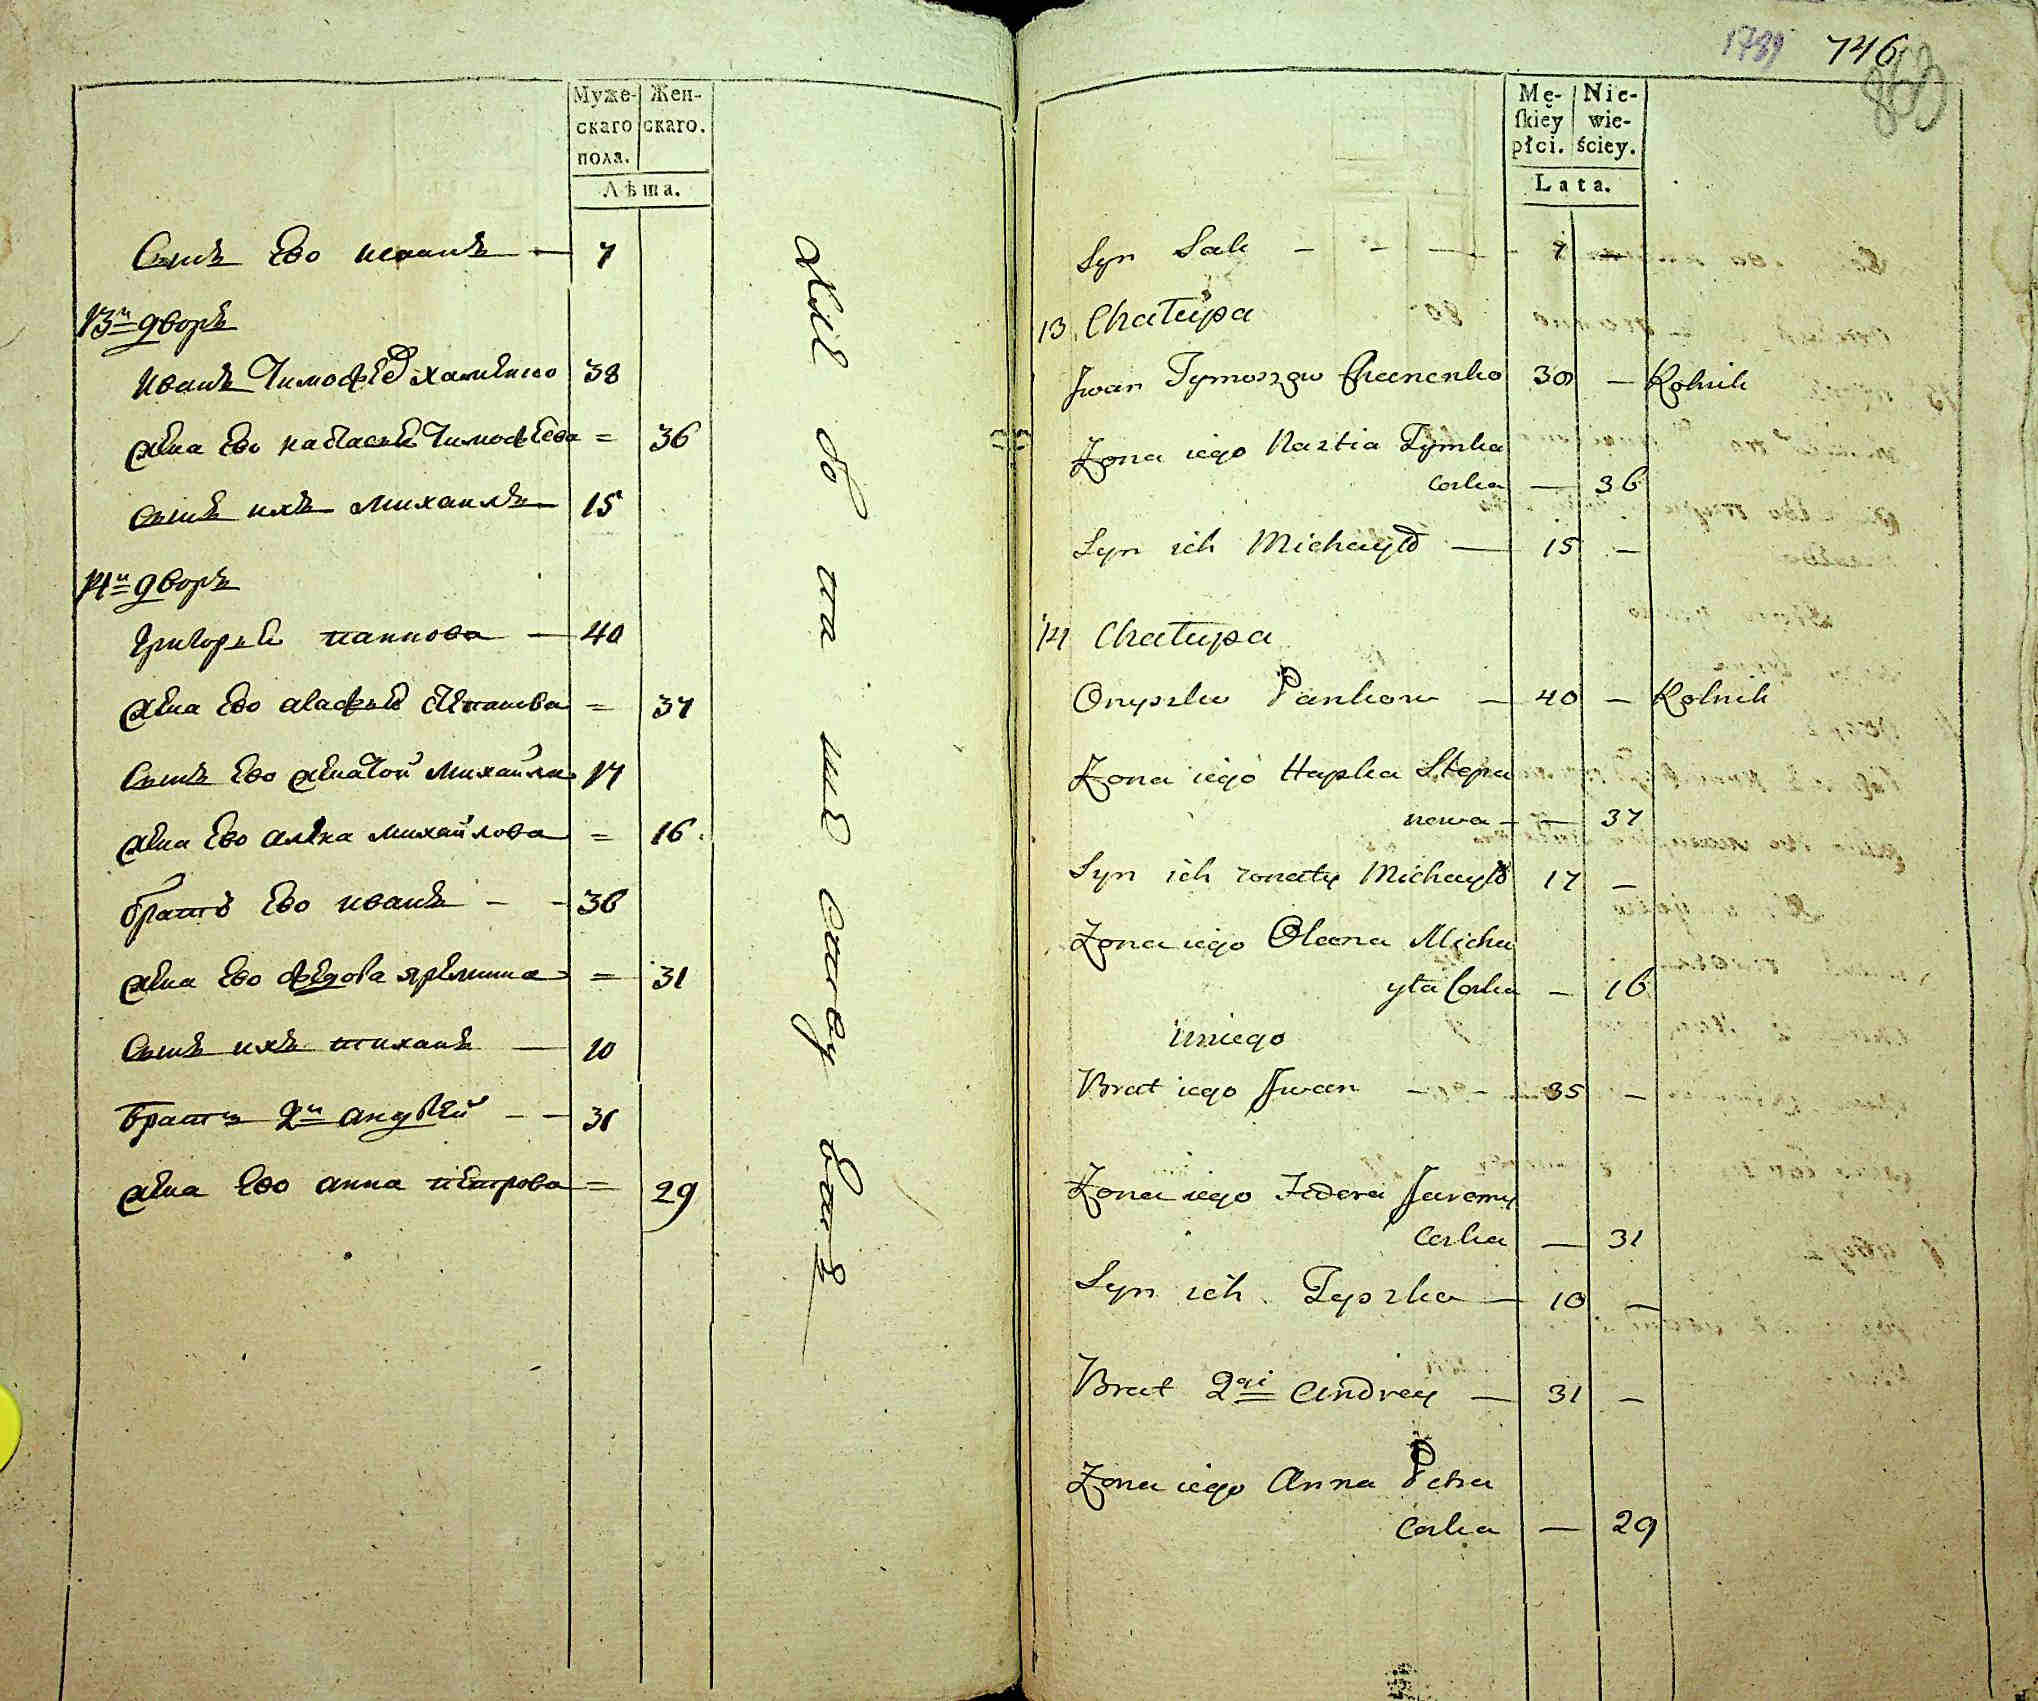 Муже-
скаго
пола.
Жен-
скаго.
Лѣта.
Сынъ Ево исаакъ — 7
13й дворъ
Иванъ Тимофѣев 38
жена Ево настасья Тимофѣева = 36
сынъ ихъ михаилъ 15
14й дворъ
Григорей панкова — 40
жена Ево агафья Степанова = 37
Сынъ Ево женатой михайла 17
жена Ево алена михайлова = 16
братъ Ево иванъ - - 36
жена Ево федора яремина = 31
Сынъ ихъ тихонъ — 10
братъ 2й андрей - - 31
жена Ево анна петрова = 29
1789 746
Mę-
skiey
płci.
Nie-
wie-
ściey.
Lata.
Syn Sak - - - - 7 —
13 Chałupa
Jwan Tymoszow 38 — Rolnik
Zona iego Nastia Tymka
Corka — 36
Syn ich Michayło — 15 —
14 Chałupa
Onyszko Pankow — 40 — Rolnik
Zona iego Hapka Stepa
nowa — — 37
Syn ich zonaty Michayło 17 —
Zona iego Olena Micha
yła Corka — 16
uniego
Brat iego Jwan - - 35 —
Zona iego Fedora Jaremy
Corka — 31
Syn ich Tyszko — 10 —
Brat 2gi Andrey — 31 —
Zona iego Anna Petra
Corka — 29